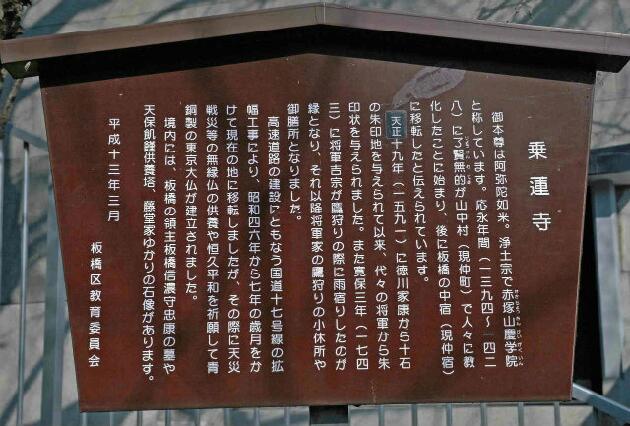 乗蓮寺
御本尊は阿弥陀如来。浄土宗で赤塚山慶学院
と称しています。応永年間（一三九四～一四二
八）に了賢無的が山中村（現仲町）で人々に教
化したことに始まり、後に板橋の中宿（現仲宿）
に移転したと伝えられています。
天正十九年（一五九一）に徳川家康から十石
の朱印地を与えられて以来、代々の将軍から朱
印状を与えられました。また寛保三年（一七四
三）に将軍吉宗が鷹狩りの際に雨宿りしたのが
縁となり、それ以降将軍家の鷹狩りの小休所や
御膳所となりました。
高速道路の建設にともなう国道十七号線の拡
幅工事により、昭和四六年から七年の歳月をか
けて現在の地に移転しましたが、その際に天災
戦災等の無縁仏の供養や恒久平和を祈願して青
銅製の東京大仏が建立されました。
境内には、板橋の領主板橋信濃守忠康の墓や
天保飢饉供養塔、藤堂家ゆかりの石像があります。
平成十三年三月
板橋区教育委員会